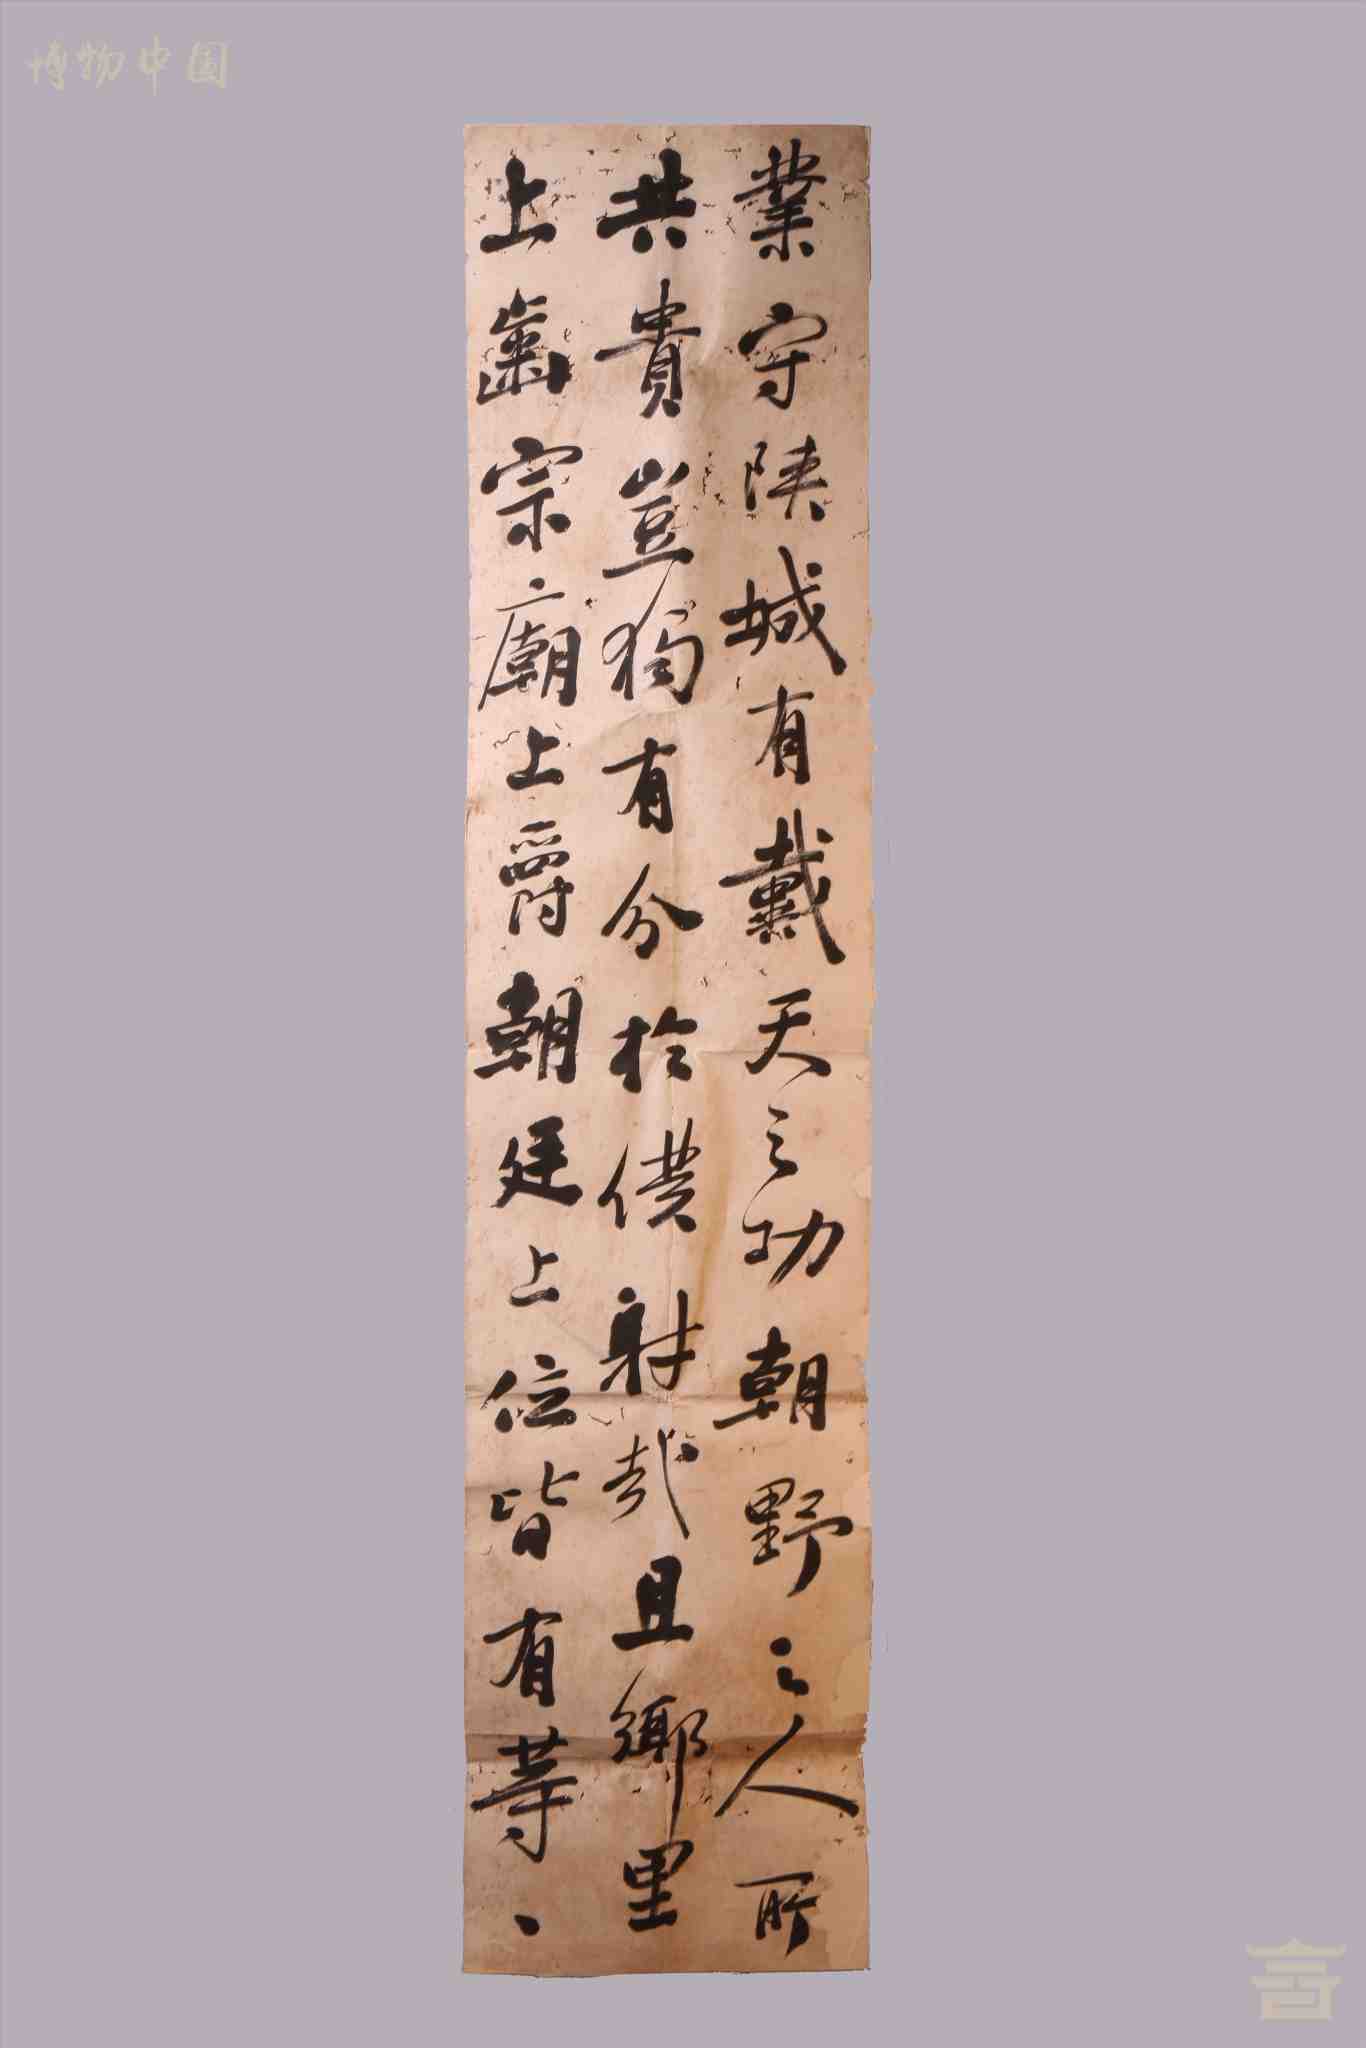 博物中国
業守陝城有戴天之功朝野之人所
共貴豈獨有分於僕射哉且鄉里
上齒宗廟上爵朝廷上位皆有等、